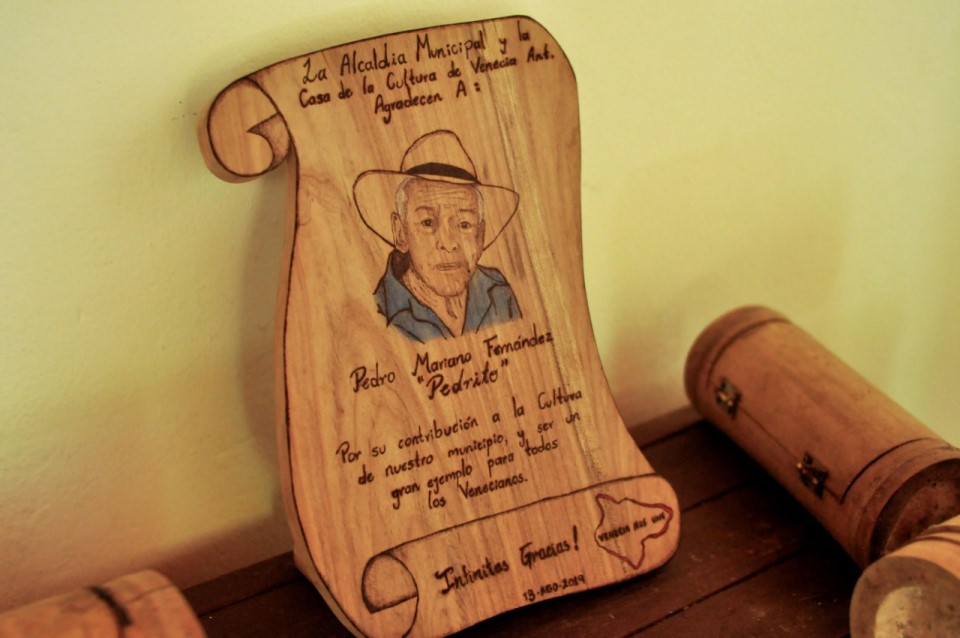 La Alcaldia Municipal y la
Casa de la Cultura de Venecia Ant.
Agradecen A :
Pedro Mariano Fernández
"Pedrito"
Por su contribución a la Cultura
de nuestro municipio, y ser un
gran ejemplo para todos
los Venecianos.
Infinitas Gracias!
VENECIA NOS UNE
13-AGO-2019